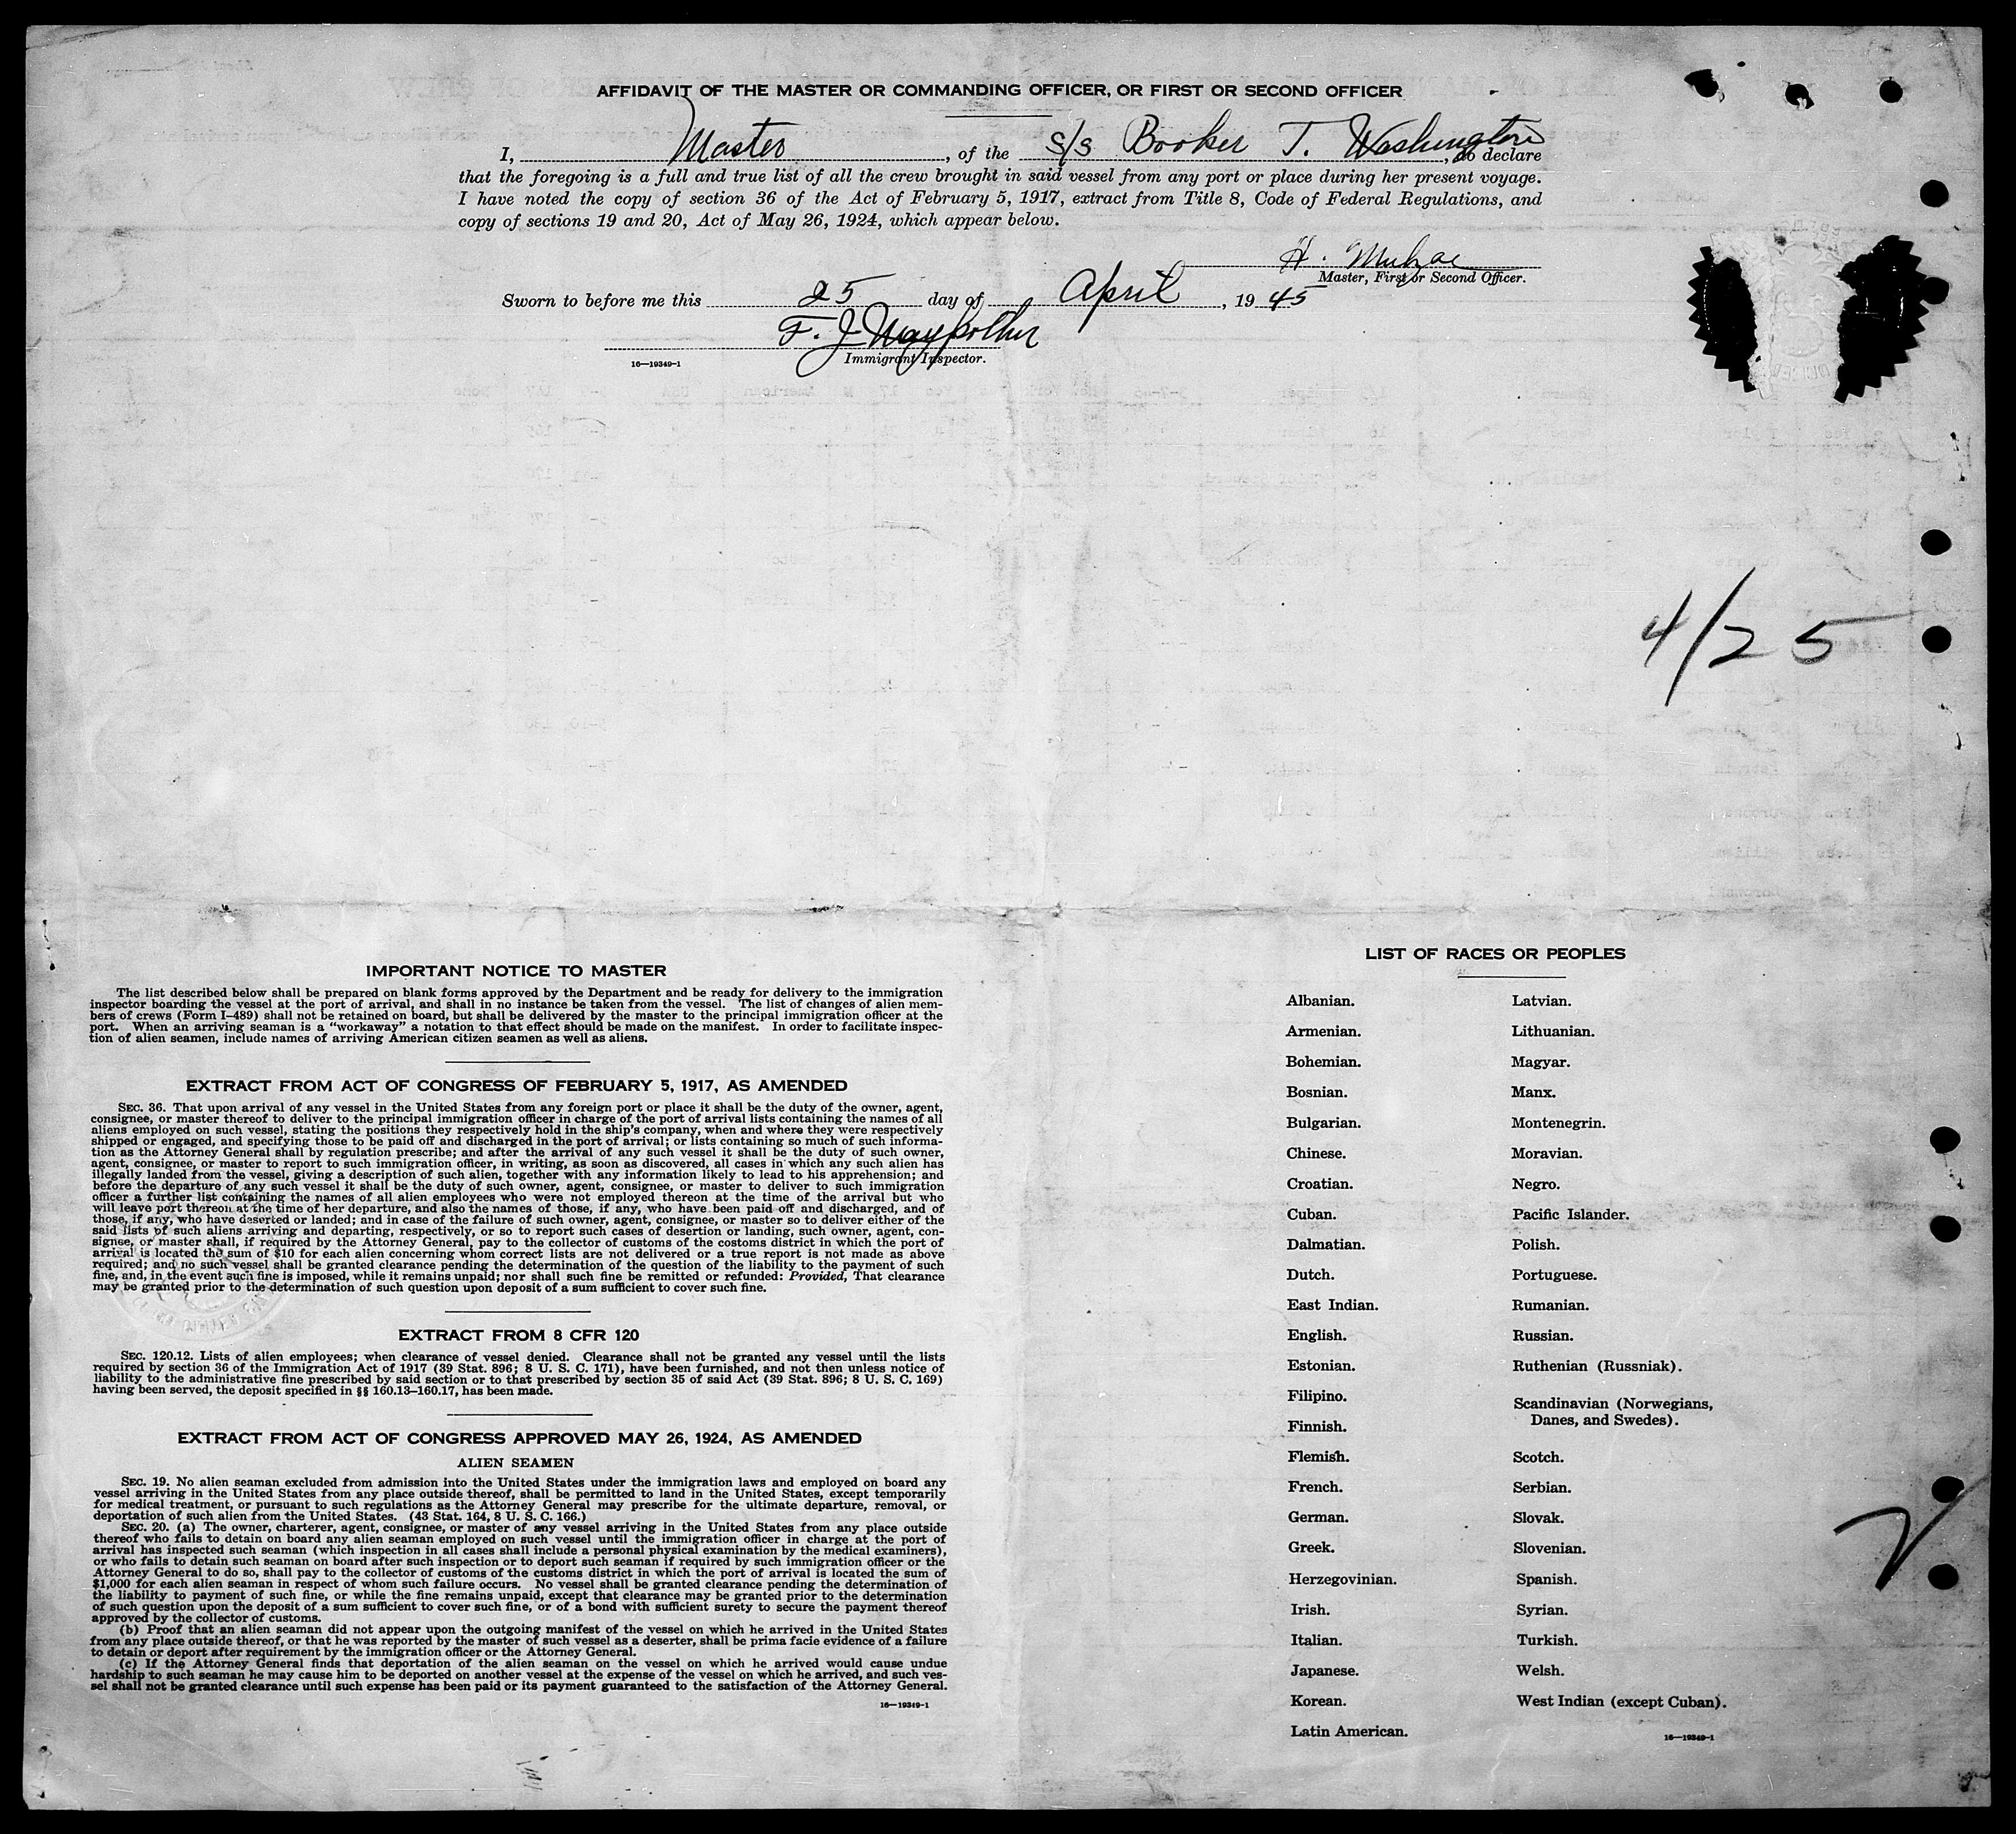 AFFIDAVIT OF THE MASTER OR COMMANDING OFFICER, OR FIRST OR SECOND OFFICER
I, Master, of the S/S Booker T. Washington, do declare
that the foregoing is a full and true list of all the crew brought in said vessel from any port or place during her present voyage.
I have noted the copy of section 36 of the Act of February 5, 1917, extract from Title 8, Code of Federal Regulations, and
copy of sections 19 and 20, Act of May 26, 1924, which appear below.
H. Mulzac
Master, First or Second Officer.
Sworn to before me this 25 day of April, 1945
F. J.
Immigrant Inspector.
16—19349-1
4/25
IMPORTANT NOTICE TO MASTER
The list described below shall be prepared on blank forms approved by the Department and be ready for delivery to the immigration
inspector boarding the vessel at the port of arrival, and shall in no instance be taken from the vessel. The list of changes of alien mem-
bers of crews (Form I–489) shall not be retained on board, but shall be delivered by the master to the principal immigration officer at the
port. When an arriving seaman is a "workaway" a notation to that effect should be made on the manifest. In order to facilitate inspec-
tion of alien seamen, include names of arriving American citizen seamen as well as aliens.
EXTRACT FROM ACT OF CONGRESS OF FEBRUARY 5, 1917, AS AMENDED
SEC. 36. That upon arrival of any vessel in the United States from any foreign port or place it shall be the duty of the owner, agent,
consignee, or master thereof to deliver to the principal immigration officer in charge of the port of arrival lists containing the names of all
aliens employed on such vessel, stating the positions they respectively hold in the ship's company, when and where they were respectively
shipped or engaged, and specifying those to be paid off and discharged in the port of arrival; or lists containing so much of such informa-
tion as the Attorney General shall by regulation prescribe; and after the arrival of any such vessel it shall be the duty of such owner,
agent, consignee, or master to report to such immigration officer, in writing, as soon as discovered, all cases in which any such alien has
illegally landed from the vessel, giving a description of such alien, together with any information likely to lead to his apprehension; and
before the departure of any such vessel it shall be the duty of such owner, agent, consignee, or master to deliver to such immigration
officer a further list containing the names of all alien employees who were not employed thereon at the time of the arrival but who
will leave port thereon at the time of her departure, and also the names of those, if any, who have been paid off and discharged, and of
those, if any, who have deserted or landed; and in case of the failure of such owner, agent, consignee, or master so to deliver either of the
said lists of such aliens arriving and departing, respectively, or so to report such cases of desertion or landing, such owner, agent, con-
signee, or master shall, if required by the Attorney General, pay to the collector of customs of the customs district in which the port of
arrival is located the sum of $10 for each alien concerning whom correct lists are not delivered or a true report is not made as above
required; and no such vessel shall be granted clearance pending the determination of the question of the liability to the payment of such
fine, and, in the event such fine is imposed, while it remains unpaid; nor shall such fine be remitted or refunded: Provided, That clearance
may be granted prior to the determination of such question upon deposit of a sum sufficient to cover such fine.
EXTRACT FROM 8 CFR 120
SEC. 120.12. Lists of alien employees; when clearance of vessel denied. Clearance shall not be granted any vessel until the lists
required by section 36 of the Immigration Act of 1917 (39 Stat. 896; 8 U. S. C. 171), have been furnished, and not then unless notice of
liability to the administrative fine prescribed by said section or to that prescribed by section 35 of said Act (39 Stat. 896; 8 U. S. C. 169)
having been served, the deposit specified in §§ 160.13–160.17, has been made.
EXTRACT FROM ACT OF CONGRESS APPROVED MAY 26, 1924, AS AMENDED
ALIEN SEAMEN
SEC. 19. No alien seaman excluded from admission into the United States under the immigration laws and employed on board any
vessel arriving in the United States from any place outside thereof, shall be permitted to land in the United States, except temporarily
for medical treatment, or pursuant to such regulations as the Attorney General may prescribe for the ultimate departure, removal, or
deportation of such alien from the United States. (43 Stat. 164, 8 U. S. C. 166.)
SEC. 20. (a) The owner, charterer, agent, consignee, or master of any vessel arriving in the United States from any place outside
thereof who fails to detain on board any alien seaman employed on such vessel until the immigration officer in charge at the port of
arrival has inspected such seaman (which inspection in all cases shall include a personal physical examination by the medical examiners),
or who fails to detain such seaman on board after such inspection or to deport such seaman if required by such immigration officer or the
Attorney General to do so, shall pay to the collector of customs of the customs district in which the port of arrival is located the sum of
$1,000 for each alien seaman in respect of whom such failure occurs. No vessel shall be granted clearance pending the determination of
the liability to payment of such fine, or while the fine remains unpaid, except that clearance may be granted prior to the determination
of such question upon the deposit of a sum sufficient to cover such fine, or of a bond with sufficient surety to secure the payment thereof
approved by the collector of customs.
(b) Proof that an alien seaman did not appear upon the outgoing manifest of the vessel on which he arrived in the United States
from any place outside thereof, or that he was reported by the master of such vessel as a deserter, shall be prima facie evidence of a failure
to detain or deport after requirement by the immigration officer or the Attorney General.
(c) If the Attorney General finds that deportation of the alien seaman on the vessel on which he arrived would cause undue
hardship to such seaman he may cause him to be deported on another vessel at the expense of the vessel on which he arrived, and such ves-
sel shall not be granted clearance until such expense has been paid or its payment guaranteed to the satisfaction of the Attorney General.
16—19349-1
LIST OF RACES OR PEOPLES
Albanian.
Armenian.
Bohemian.
Bosnian.
Bulgarian.
Chinese.
Croatian.
Cuban.
Dalmatian.
Dutch.
East Indian.
English.
Estonian.
Filipino.
Finnish.
Flemish.
French.
German.
Greek.
Herzegovinian.
Irish.
Italian.
Japanese.
Korean.
Latin American.
Latvian.
Lithuanian.
Magyar.
Manx.
Montenegrin.
Moravian.
Negro.
Pacific Islander.
Polish.
Portuguese.
Rumanian.
Russian.
Ruthenian (Russniak).
Scandinavian (Norwegians,
Danes, and Swedes).
Scotch.
Serbian.
Slovak.
Slovenian.
Spanish.
Syrian.
Turkish.
Welsh.
West Indian (except Cuban).
16—19349-1